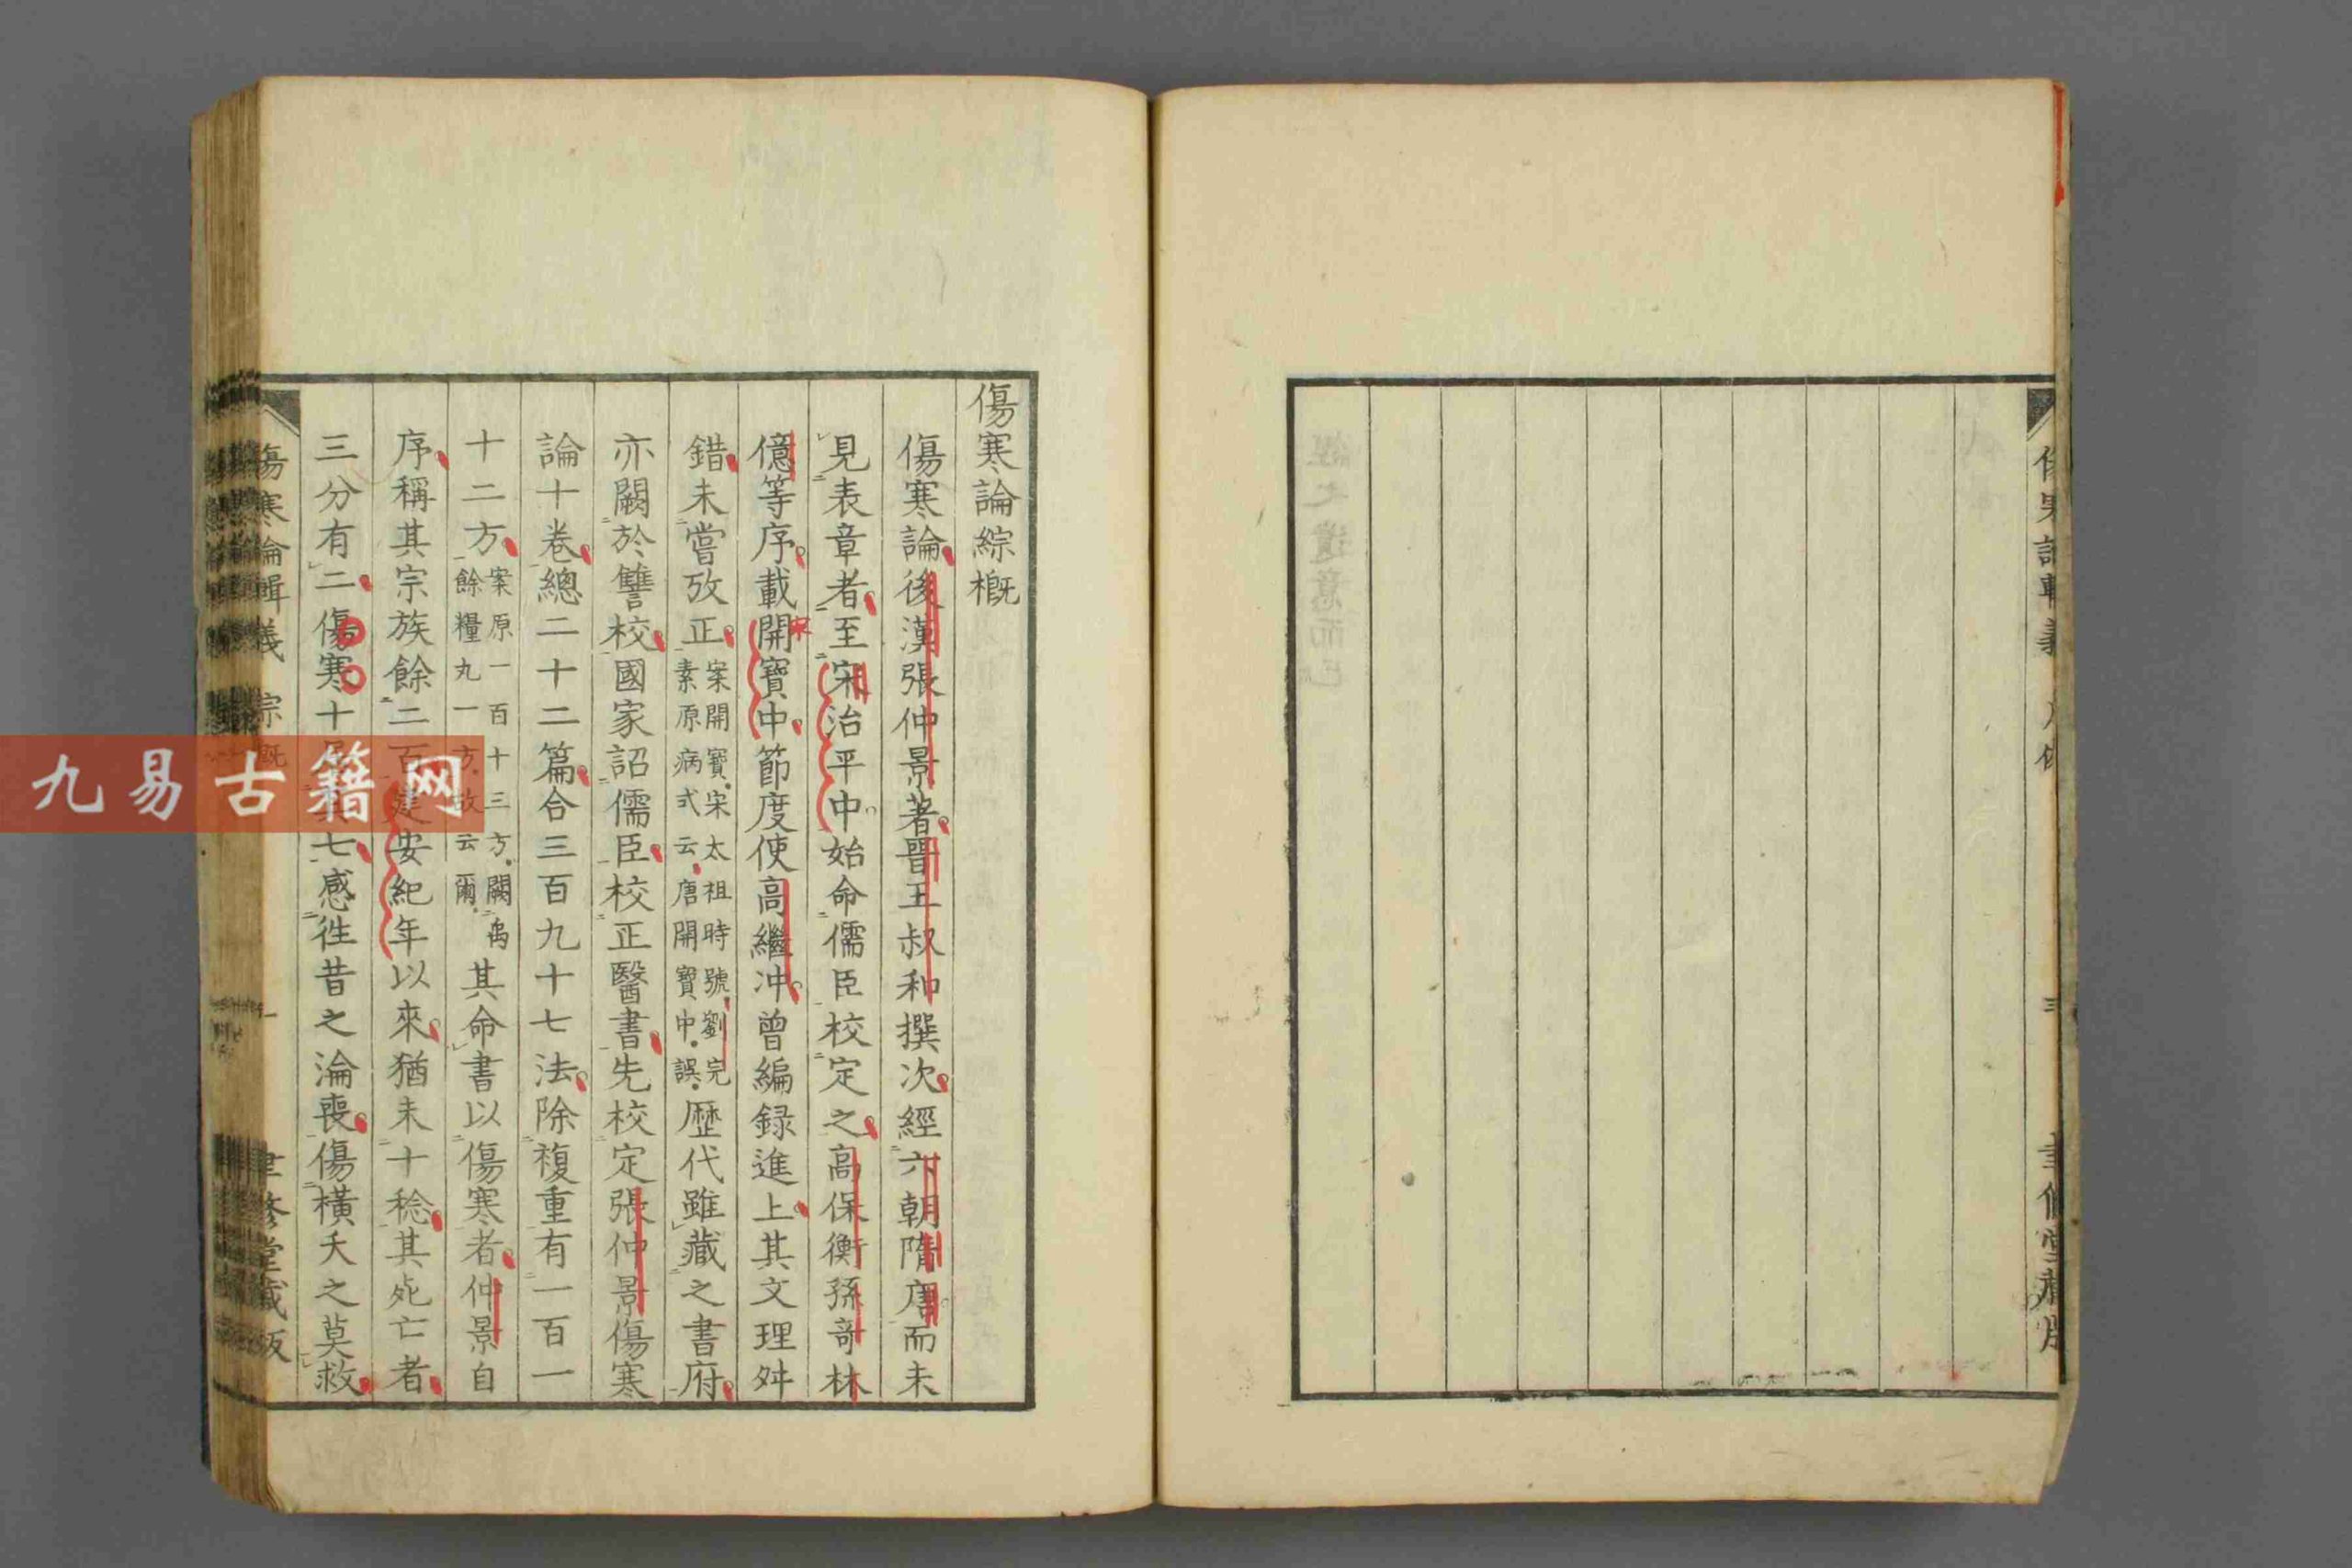 傷寒論綜概
傷寒論後漢張仲景著晉王叔和撰次經六朝隋唐而未
見表章者至宋治平中始命儒臣校定之高保衡孫奇林
億等序載開寶中節度使高繼冲曾編録進上其文理舛
宋
錯未嘗攷正案開寶宋太祖時號劉完素原病式云唐開寶中誤歷代雖藏之書府
亦闕於讐校國家詔儒臣校正醫書先校定張仲景傷寒
論十卷總二十二篇合三百九十七法除複重有一百一
十二方案原一百十三方闕禹餘糧丸一方故云爾其命書以傷寒者仲景自
序稱其宗族餘二百建安紀年以來猶未十稔其死亡者
三分有二傷寒十居其七感往昔之淪喪傷橫夭之莫救
傷寒論輯義 綜概 一 聿修堂藏版
九易古籍网